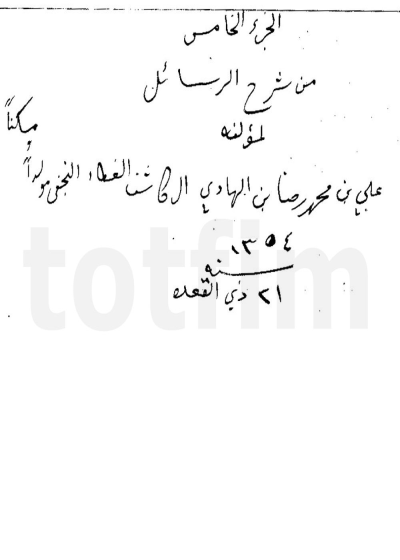 الجزء الخامس
من شرح الرسائل
لمؤلفه
علي بن محمد رضا بن الهادي ال كاشف الغطاء النجفي مولداً ومسكناً
١٣٥٤
سنه
٢١ ذي القعده
totfim